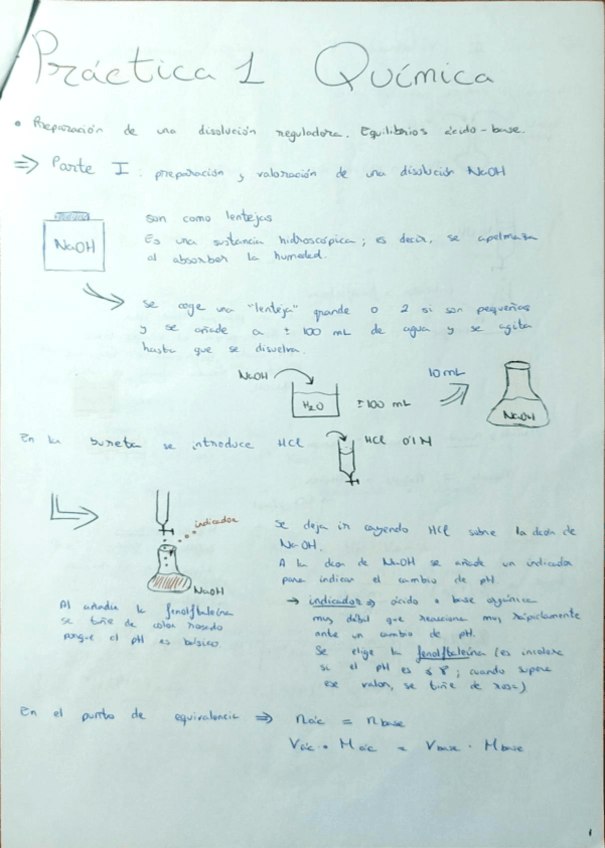 Práctica 1 Química
• Preparación de una disolución reguladora. Equilibrios ácido-base.
⇒ Parte I: preparación y valoración de una disolución NaOH
NaOH
son como lentejas
Es una sustancia hidroscópica; es decir, se apelmaza
al absorber la humedad.
se coge una "lenteja" grande o 2 si son pequeñas
y se añade a ± 100 mL de agua y se agita
hasta que se disuelva.
NaOH
H2O
±100 mL
10 mL
NaOH
En la bureta se introduce HCl
HCl 0'1 N
indicador
NaOH
Al añadir la fenolftaleína
se tiñe de color rosado
porque el pH es básico
Se deja ir cayendo HCl sobre la dcon de
NaOH.
A la dcon de NaOH se añade un indicador
para indicar el cambio de pH.
→ indicador ⇒ ácido o base orgánica
muy débil que reacciona muy rápidamente
ante un cambio de pH.
Se elige la fenolftaleína (es incolora
si el pH es ≤ 8; cuando supera
ese valor, se tiñe de rosa)
En el punto de equivalencia ⇒ nác = nbase
Vác · Mác = Vbase · Mbase
1